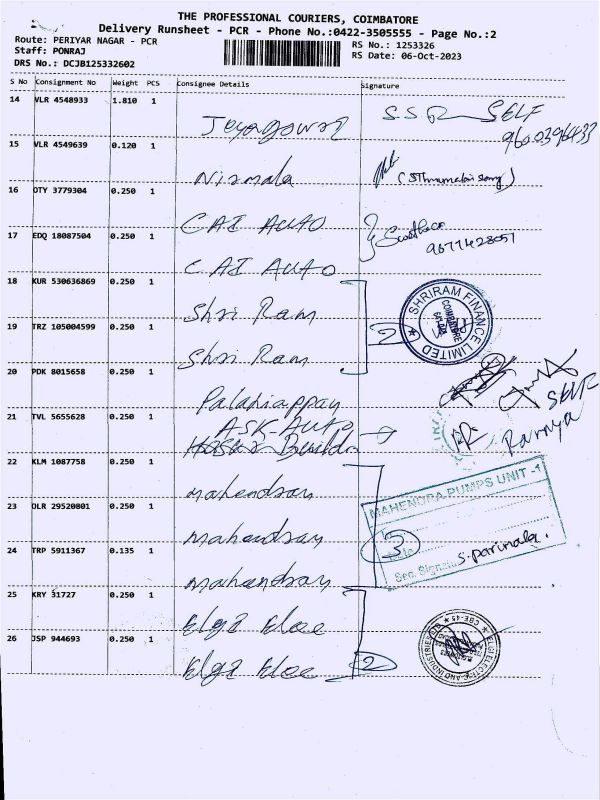 THE PROFESSIONAL COURIERS, COIMBATORE
Delivery Runsheet - PCR - Phone No.:0422-3505555 - Page No.:2
Route: PERIYAR NAGAR - PCR
RS No.: 1253326
Staff: PONRAJ
RS Date: 06-Oct-2023
DRS No.: DCJB125332602
S No Consignment No Weight PCS Consignee Details Signature
14 VLR 4548933 1.810 1
SELF
15 VLR 4549639 0.120 1
Nirmala
16 OTY 3779304 0.250 1
CAI AUTO
17 EDQ 18087504 0.250 1
9677428057
CAI AUTO
18 KUR 530636869 0.250 1
Shri Ram
SHRIRAM FINANCE LIMITED
COIMBATORE
2
19 TRZ 105004599 0.250 1
Shri Ram
20 PDK 8015658 0.250 1
Palaniappan
SELF
21 TVL 5655628 0.250 1
ASK-AUTO
Ramya
22 KLM 1087758 0.250 1
mahendran
MAHENDRA PUMPS UNIT -1
23 DLR 29520801 0.250 1
Mahendran
3
S. parimala.
24 TRP 5911367 0.135 1
Mahendran
25 KRY 31727 0.250 1
Elgi Elec
26 JSP 944693 0.250 1
Elgi Elec
2